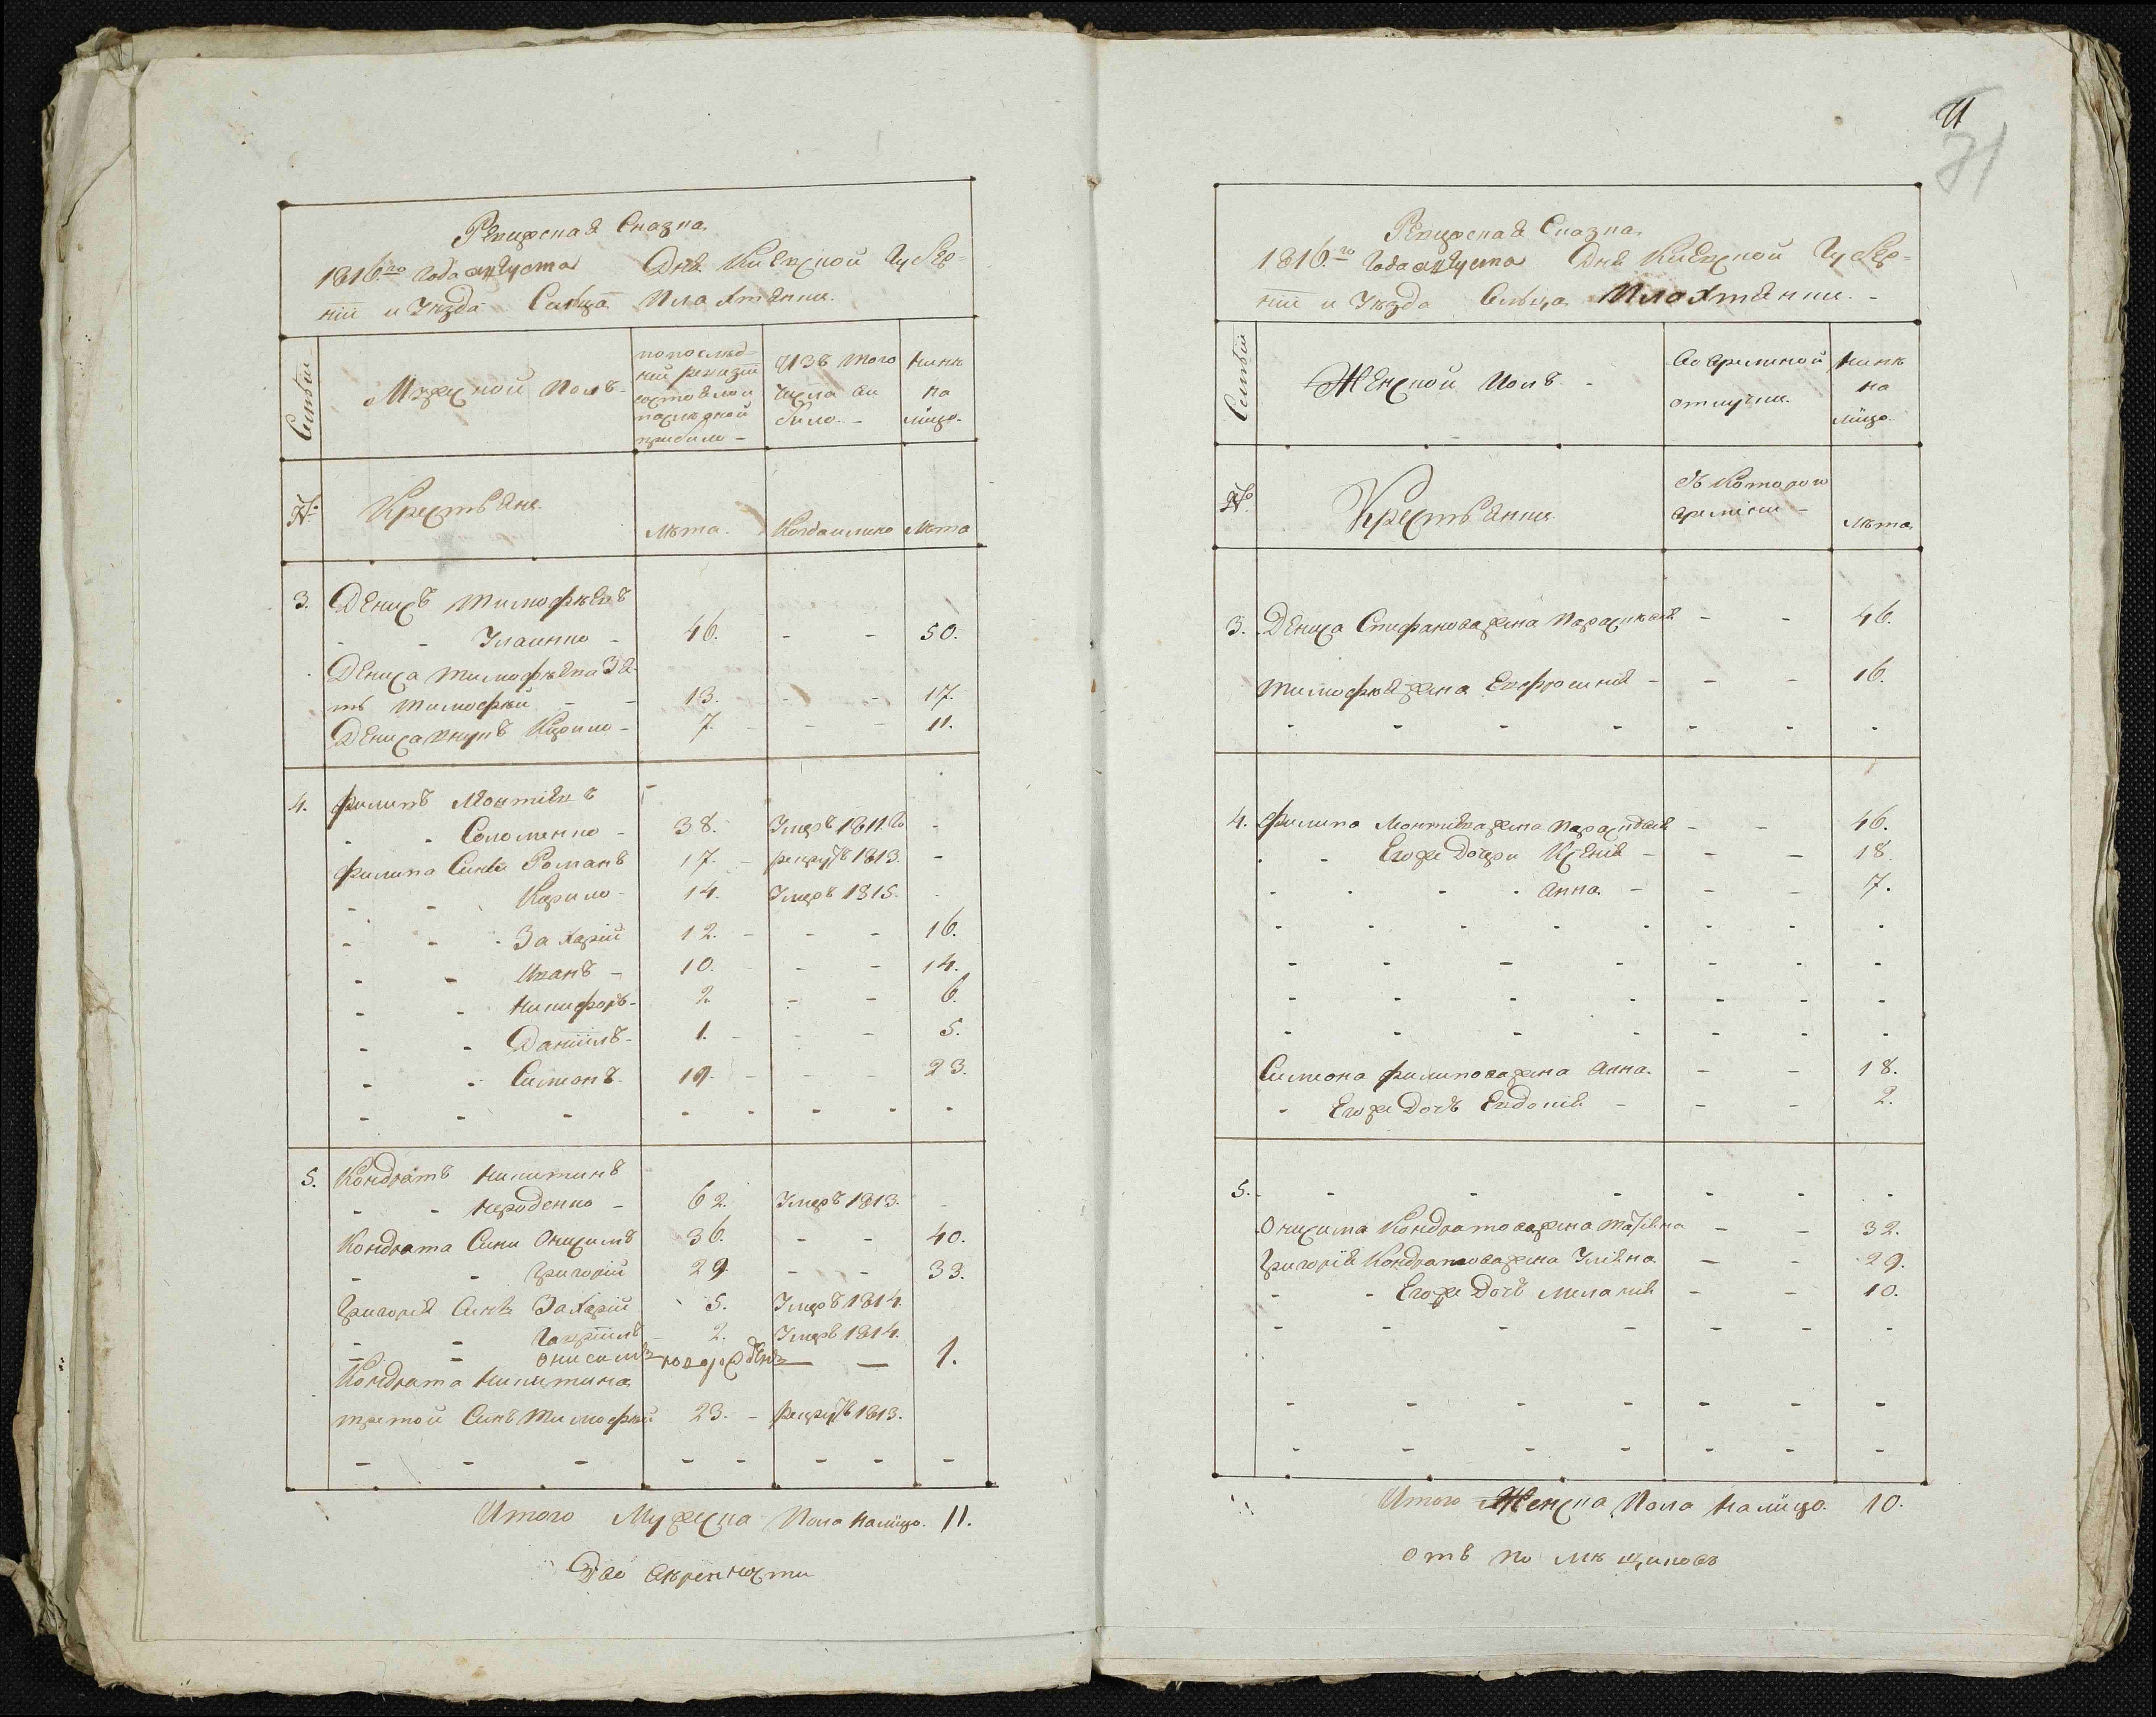 Ревижская Сказка
1816.го Года августа Дня Киевской Губер=
нии и Уезда Сельца Плахтянки.
Семьи
Мужеской полъ.
по послед=
ней ревизии
состояло и
после дной
прибыло -
Изъ того
числа вы
было. -
Ныне
на
лицо.
№.
Крестьяне.
Лета.
Когда имянно
Лета
3. Денисъ Тимофеевъ
- - Ильченко - 46. - - 50.
Дениса Тимофеева Зя
ть Тимофей - - 13. - - 17.
Дениса внукъ Кирило - 7. - - 11.
4. Филипъ Леонтиевъ
- - Соломенко - 38. Умеръ 1811.го -
Филипа Сыны Романъ 17. - рекрутъ 1813. -
- - Кирило - 14. Умеръ 1815. -
- - Захарій 12. - - - 16.
- - Иванъ - 10. - - 14.
- - Никифоръ - 2. - - 6.
- - Даніилъ - 1. - - - 5.
- - Симеонъ. 19. - - - 23.
- - - - - - - -
5. Кондратъ Никитинъ
- - Нероденко - 62. Умеръ 1813. -
Кондрата Сыны Онисимъ 36. - - 40.
- - Григорій 29. - - 33.
Григорія Сынъ Захарій 5. Умеръ 1814.
- - Гавріилъ - 2. Умеръ 1814.
- - Онисимъ новорожденъ — — 1.
Кондрата Никитина
третой Сынъ Тимофей 23. - рекрутъ 1813.
- - - - - - - -
Итого Мужеска Пола налицо. 11.
Два
71
71
Ревижская Сказка
1816.го Года августа Дня Киевской Губер=
нии и Уезда Сельца Плахтянки. -
Семьи
Женской полъ. -
Во временной
отлучки.
Ныне
на
лицо.
№.
Крестьянки.
Съ Которого
времени -
Лета
3. Дениса Стефанова жена Параскевия - - 46.
Тимофея жена Евфросиния - - - 16.
- - - - - - -
4. Филипа Леонтиева жена Параскевия - - 46.
- - Егоже Дочери Ксения - - - 18.
- - - - Анна. - - - 7.
- - - - - - - -
- - - - - - -
- - - - - - -
- - - - - - -
Симеона Филипова жена Анна. - - 18.
- Егоже Дочь Евдокия - - - 2.
5. - - - - - -
Онисима Кондратова жена Татьяна - - 32.
Григорія Кондратова жена Ульяна - - 29.
- - Егоже Дочь Меланія - - 10.
- - - - - - -
- - - - - - -
- - - - - - -
Итого Женска Пола налицо. 10.
отъ помещиковъ